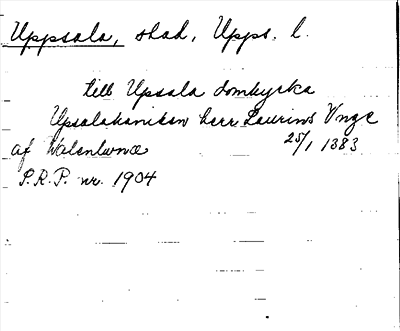 Uppsala, stad, Upps. l.
till Upsala domkyrka
Upsalakaniken herr Laurins Unge
af Walentunæ 25/1 1383
P.R.P. nr. 1904